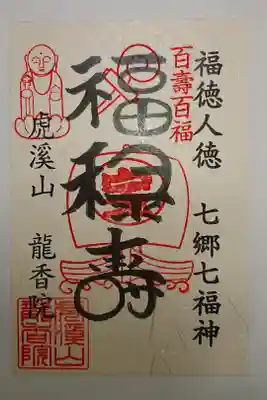 福徳人徳 七郷七福神
百壽百福
福禄壽
虎溪山 龍香院
虎溪山
龍香院